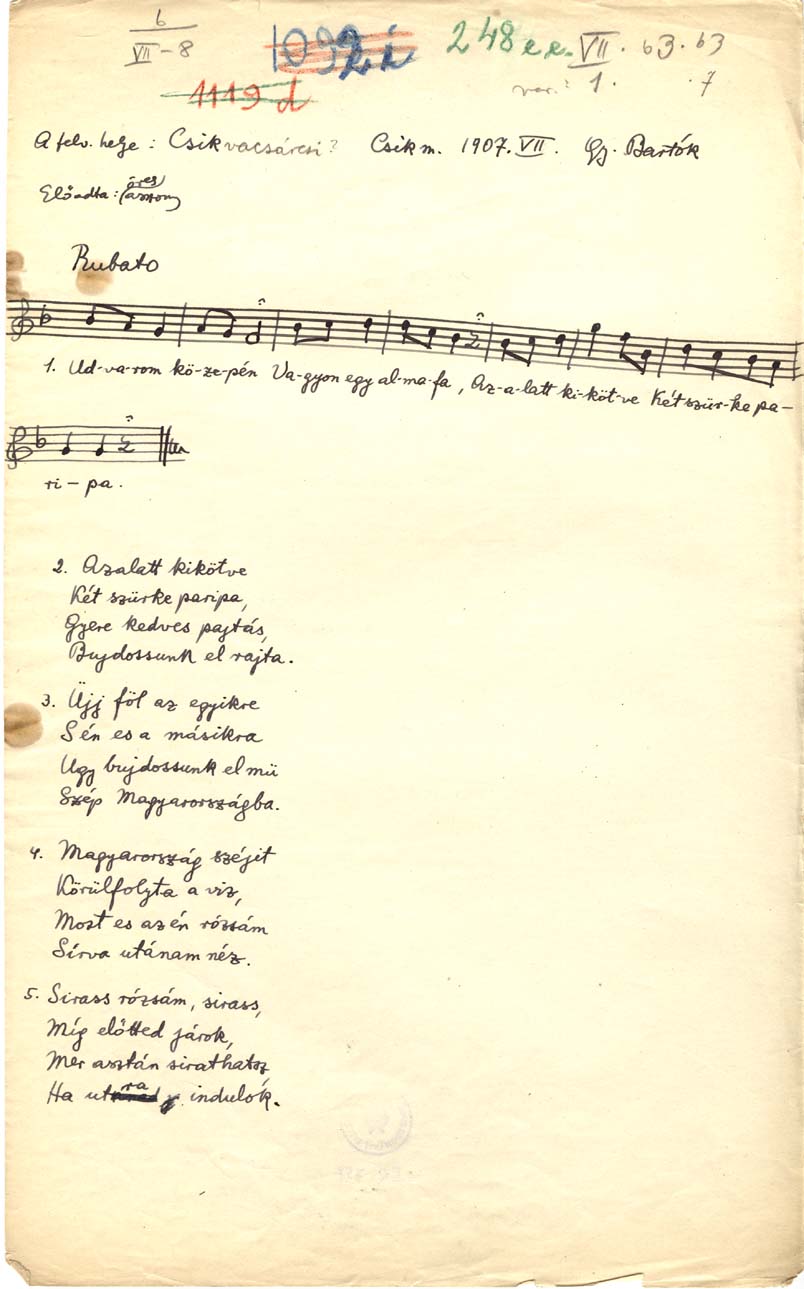 6
VII-8
1092i
248ee.
VII. 63. 63
1119d
var.? 1. .7
A felv. helye: Csikvacsárcsi? Csikm. 1907. VII. Gy. Bartók
Előadta: (öreg) asszony
Rubato
1. Ud-va-rom kö-ze-pén Va-gyon egy al-ma-fa, Az-a-latt ki-köt-ve Két szür-ke pa-
ri-pa.
2. Azalatt kikötve
Két szürke paripa,
Gyere kedves pajtás,
Bujdossunk el rajta.
3. Üjj föl az egyikre
S én es a másikra
Ugy bujdossunk el mü
Szép Magyarországba.
4. Magyarország széjit
Körülfolyta a viz,
Most es az én rózsám
Sírva utánam néz.
5. Sirass rózsám, sirass,
Míg előtted járok,
Mer asztán sirathatsz
Ha utra indulok.